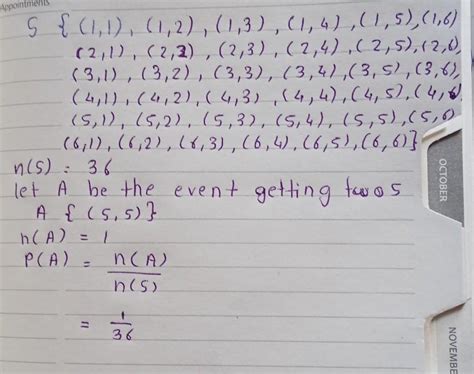 Appointments
S { (1,1), (1,2), (1,3), (1,4), (1,5), (1,6)
(2,1), (2,2), (2,3), (2,4), (2,5), (2,6),
(3,1), (3,2), (3,3), (3,4), (3,5), (3,6),
(4,1), (4,2), (4,3), (4,4), (4,5), (4,6)
(5,1), (5,2), (5,3), (5,4), (5,5), (5,6)
(6,1), (6,2), (6,3), (6,4), (6,5), (6,6)}
n(S) = 36
let A be the event getting two 5
A { (5,5)}
n(A) = 1
P(A) = n(A)
n(S)
= 1
36
OCTOBER
NOVEMBE